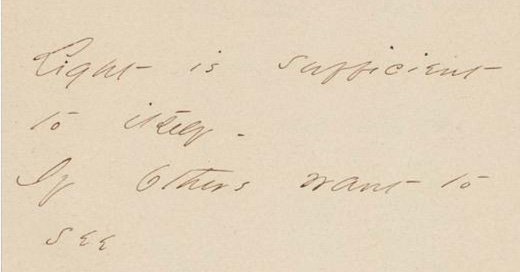 Light is sufficient
to itself -
If Others want to
see